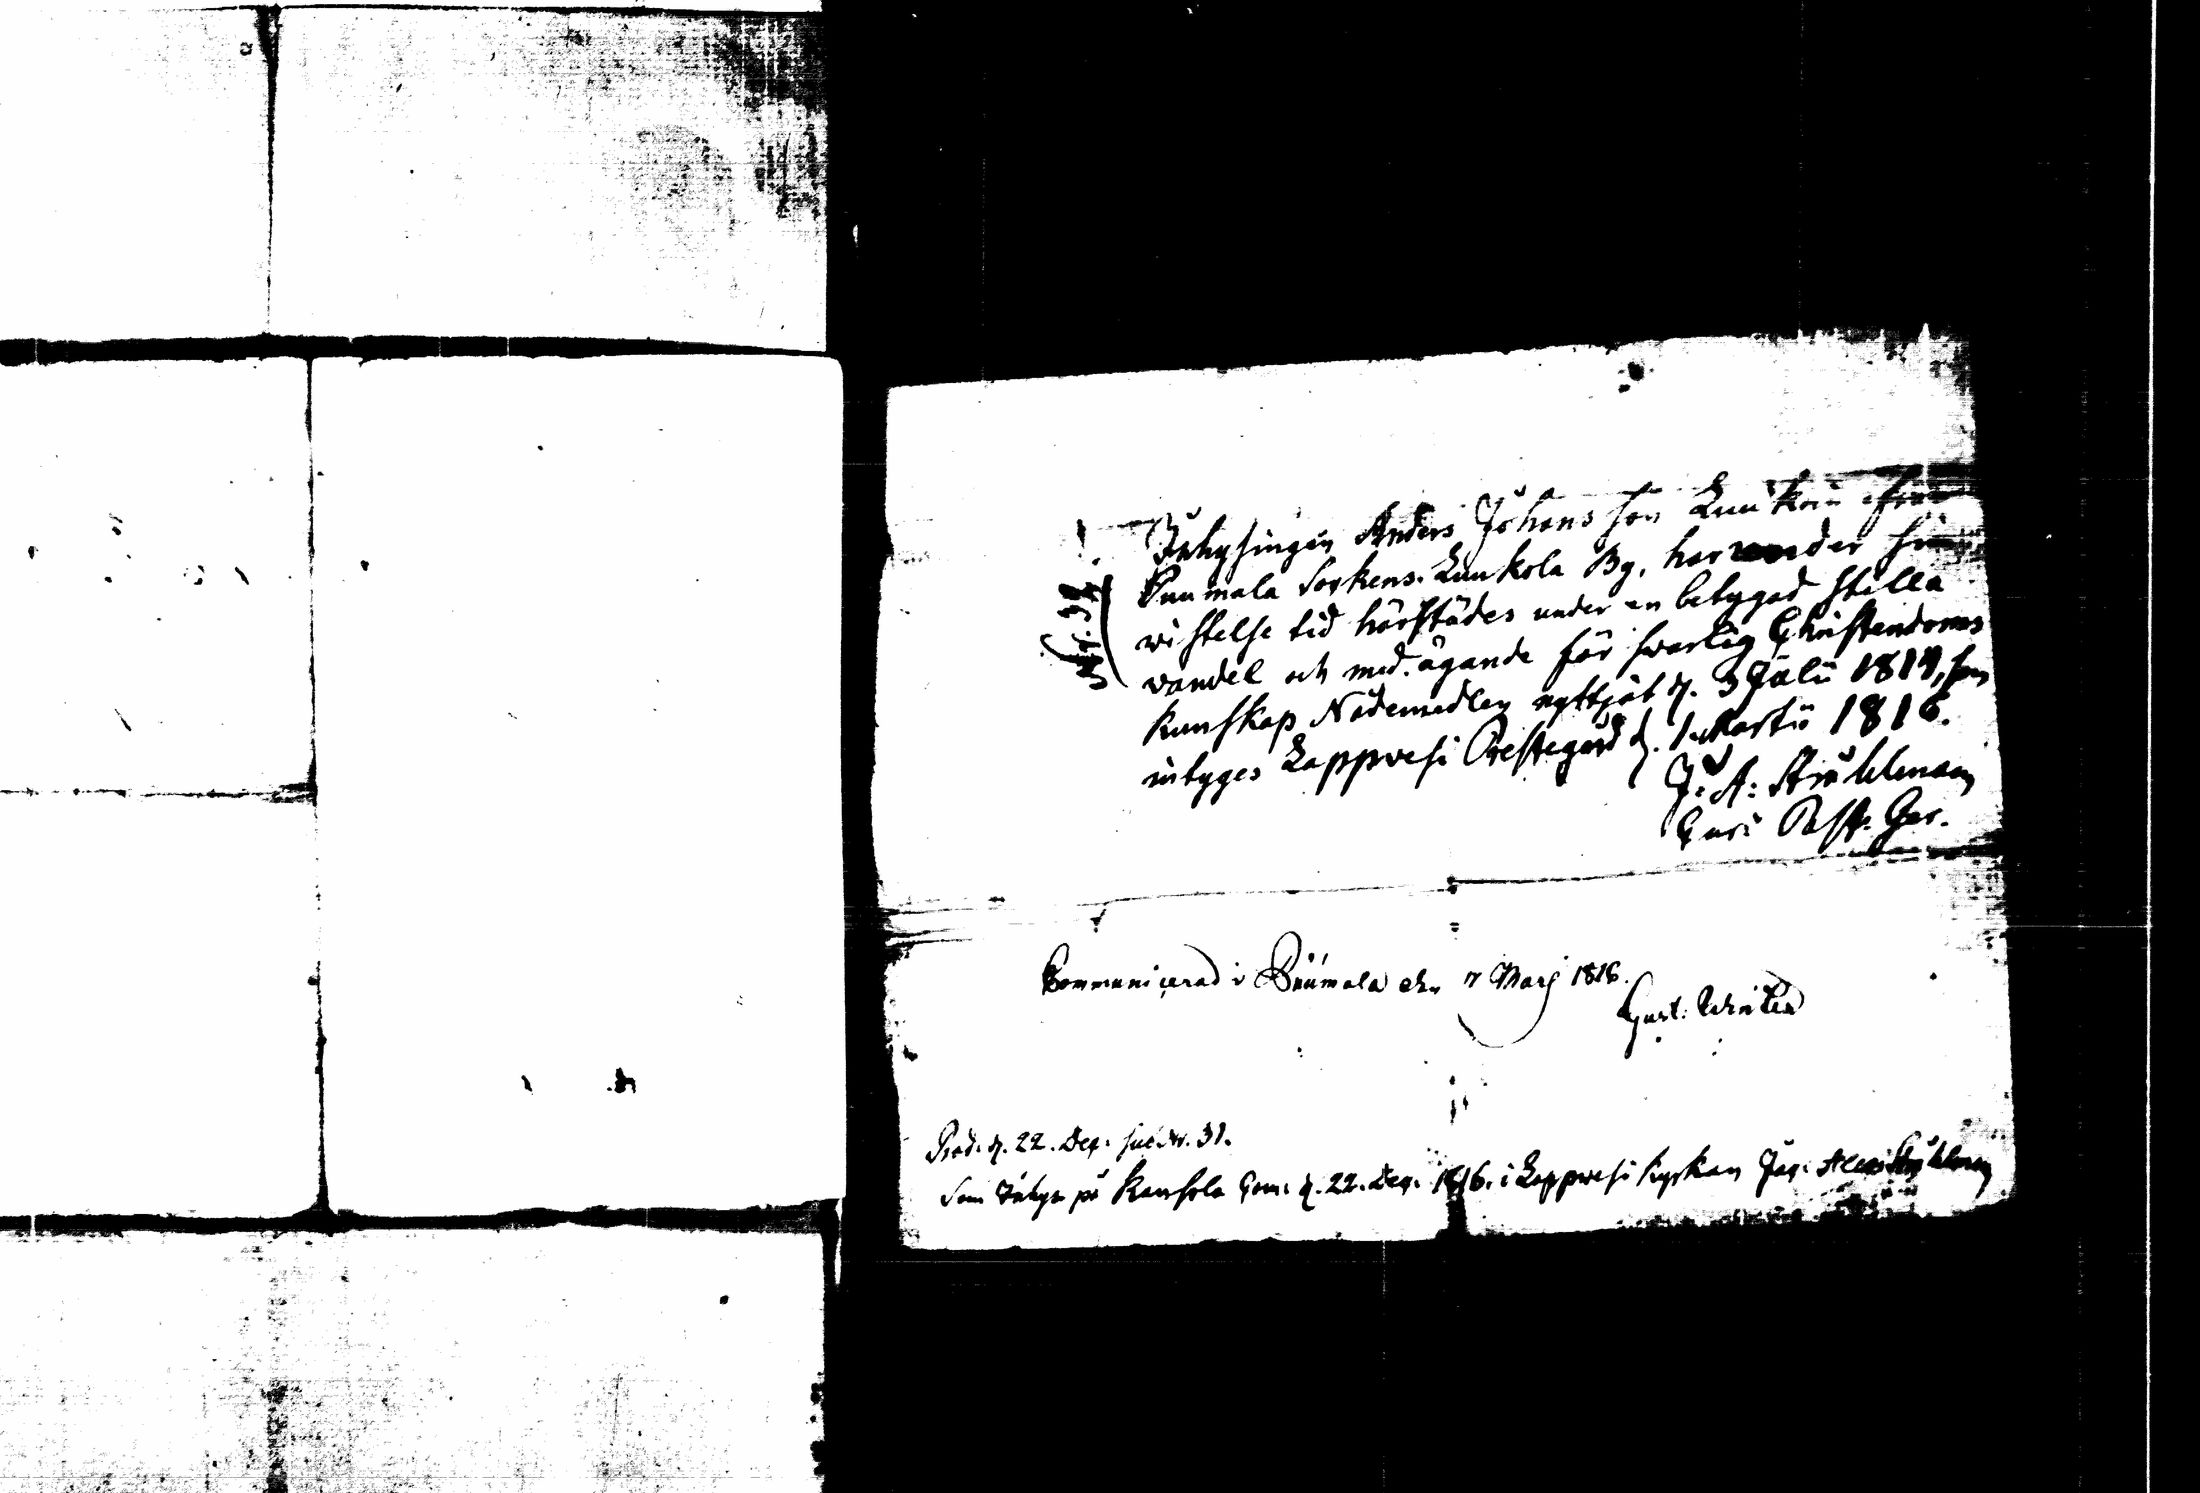 Nr. 32.
Inhysingen Anders Johans son Luukoin ifrån
Puumala Sockens Luukola By, har under sin
wistelse tid härstädes under en betygad stilla
vandel och med ägande för swarlig Christendoms
kunskap Nådemedlen nyttjat d. 3 Julii 1814, som
intyges Lappvesi Prestegård d. 1 Martii 1816.
J: A: Stråhlman
Past.
Communicerad i Puumala d. 7 Marj 1816.
Gust:
Prod. d. 22. Dec. sub Nr. 31.
Som Inhys på Kansola Gom. d. 22. Dec. 1816. i Lappvesi kyrkan Jac. Alex. Stråhlman